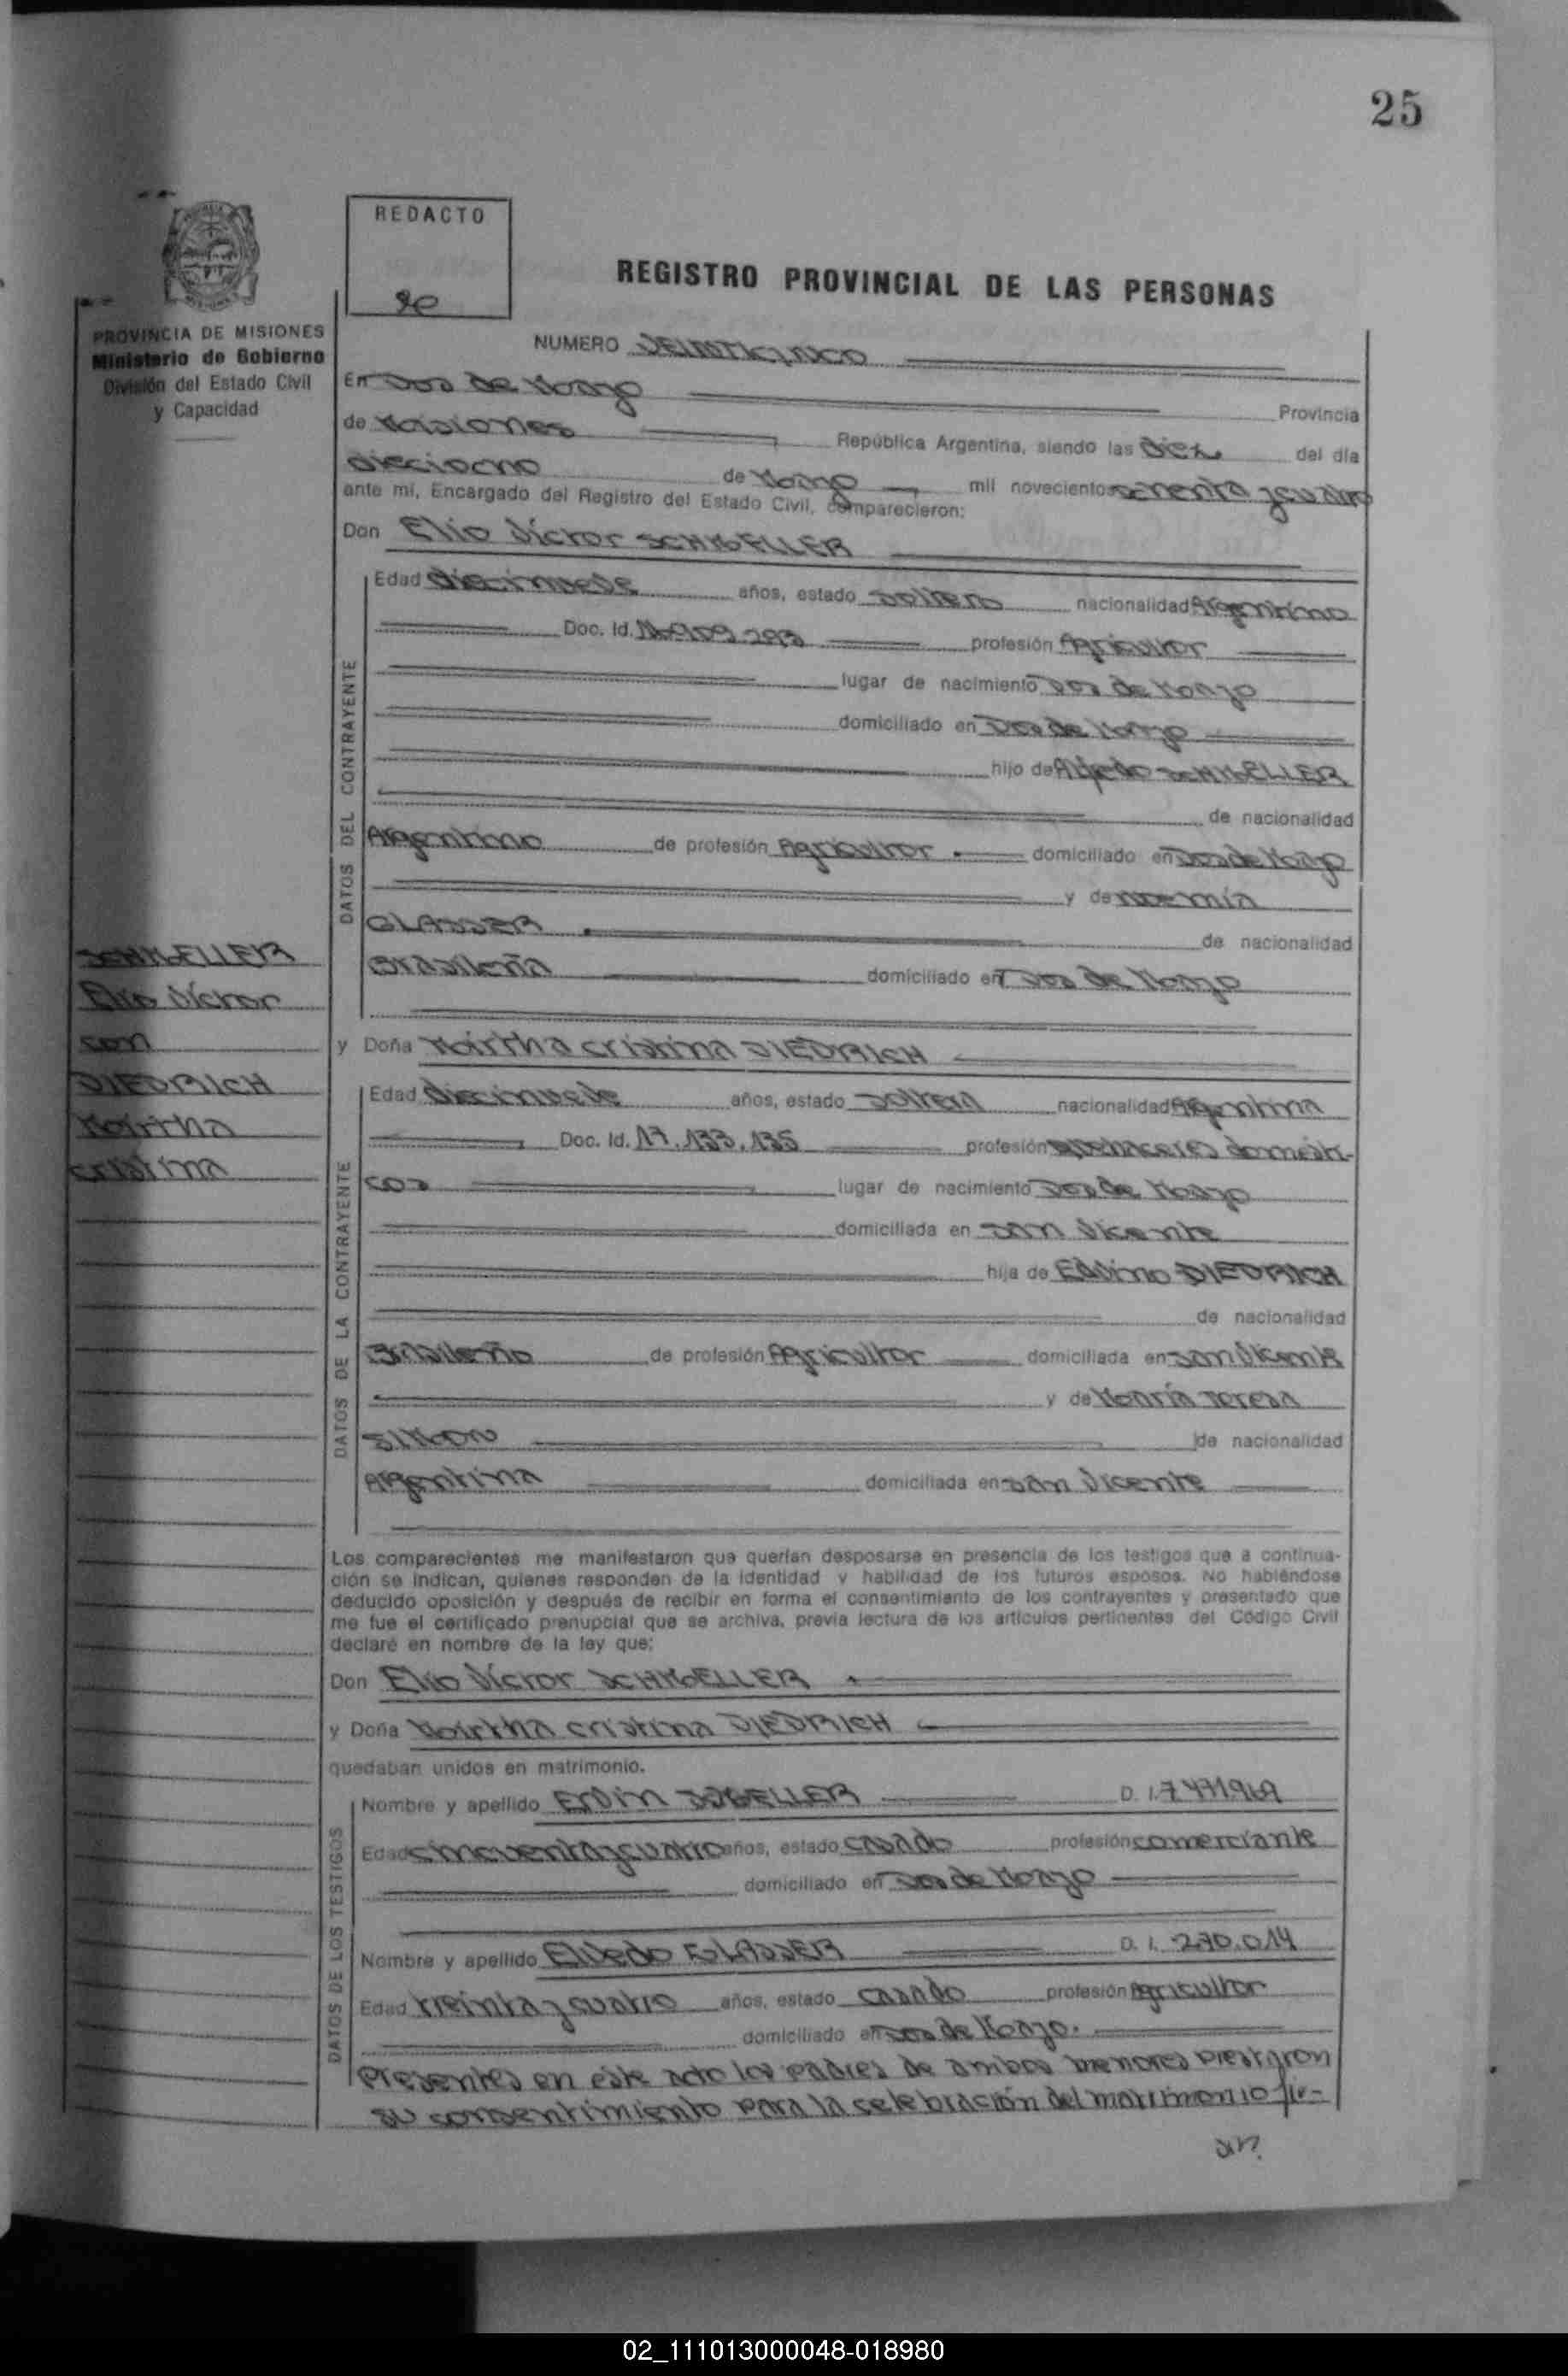 25
REDACTO
REGISTRO PROVINCIAL DE LAS PERSONAS
PROVINCIA DE MISIONES
Ministerio de Gobierno
División del Estado Civil
y Capacidad
NUMERO VEINTICINCO
En Dos de Mayo Provincia
de Misiones República Argentina, siendo las diez del día
dieciocho de Mayo mil novecientos
ante mí, Encargado del Registro del Estado Civil, comparecieron:
Don Elio Víctor SCHMOELLER
Edad diecinueve años, estado soltero nacionalidad Argentino
Doc. Id. profesión Agricultor
lugar de nacimiento Dos de Mayo
domiciliado en Dos de Mayo
hijo de Alfredo SCHMOELLER
de nacionalidad
Argentino de profesión Agricultor domiciliado en Dos de Mayo
y de Noemía
GLASSER de nacionalidad
Brasileña domiciliado en Dos de Mayo
SCHMOELLER
Elio Víctor
con
DIEDRICH
Mirtha
cristina
y Doña Mirtha cristina DIEDRICH
Edad diecinueve años, estado soltera nacionalidad Argentina
Doc. Id. 17.133.135 profesión quehaceres domésti-
cos lugar de nacimiento Dos de Mayo
domiciliada en San Vicente
hija de Edvino DIEDRICH
de nacionalidad
Brasileño de profesión Agricultor domiciliada en San Vicente
y de María Teresa
SIMON de nacionalidad
Argentina domiciliada en San Vicente
DATOS DEL CONTRAYENTE
DATOS DE LA CONTRAYENTE
Los comparecientes me manifestaron que querían desposarse en presencia de los testigos que a continua-
ción se indican, quienes responden de la identidad y habilidad de los futuros esposos. No habiéndose
deducido oposición y después de recibir en forma el consentimiento de los contrayentes y presentado que
me fue el certificado prenupcial que se archiva, previa lectura de los artículos pertinentes del Código Civil
declaré en nombre de la ley que:
Don Elio Víctor SCHMOELLER
y Doña Mirtha cristina DIEDRICH
quedaban unidos en matrimonio.
Nombre y apellido D. I.
Edad cincuenta y cuatro años, estado casado profesión comerciante
domiciliado en Dos de Mayo
Nombre y apellido GLASSER D. I. 270.014
Edad treinta y cuatro años, estado casado profesión Agricultor
domiciliado en Dos de Mayo.
DATOS DE LOS TESTIGOS
Presentes en este acto los padres de ambos menores prestaron
su consentimiento para la celebración del matrimonio
02_111013000048-018980